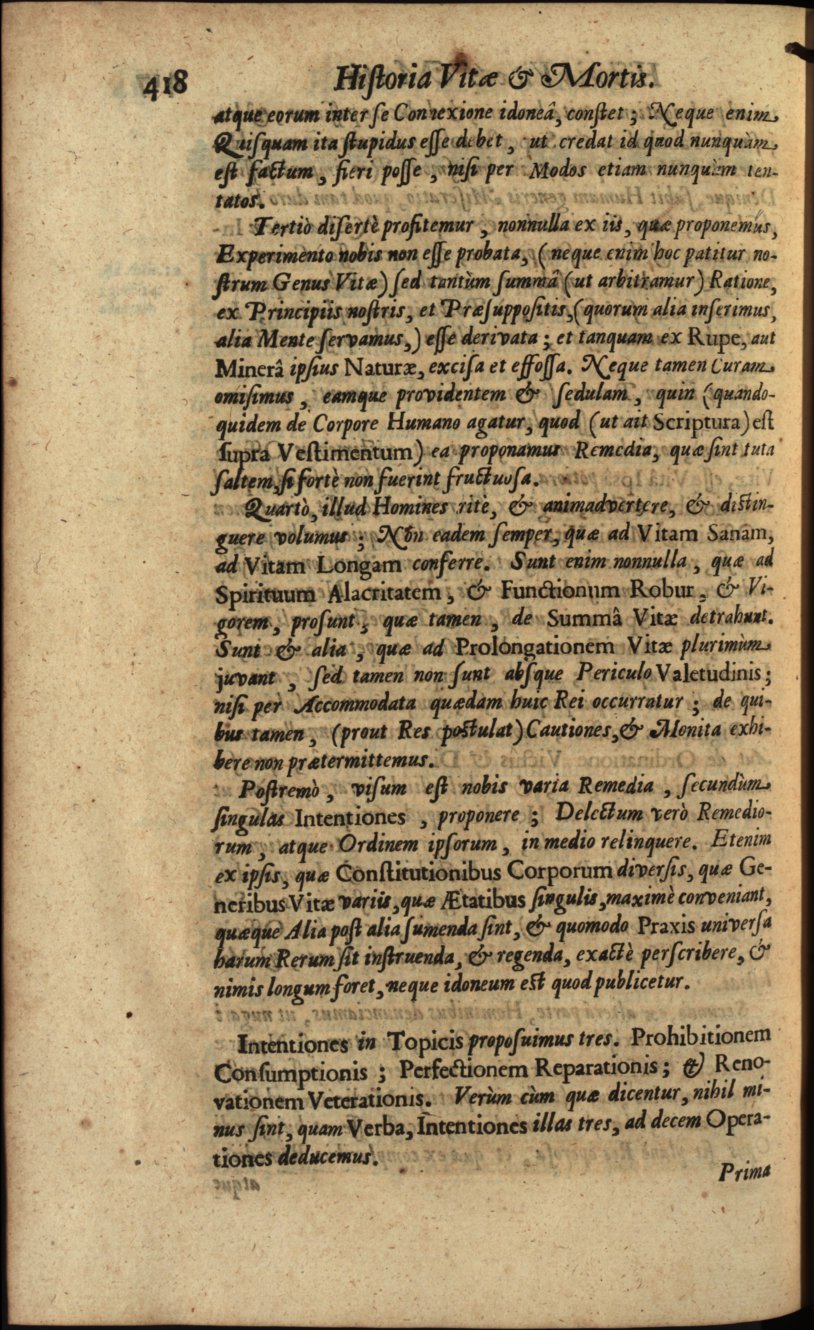 418 Historia Vitæ & Mortis.
atque eorum inter se Connexione idoneâ, constet; Neque enim
Quisquam ita stupidus esse debet, ut credat id quod nunquàm
est factum, fieri posse, nisi per Modos etiam nunquàm ten-
tatos.
Tertiò disertè profitemur, nonnulla ex iis, quæ proponemus,
Experimento nobis non esse probata, (neque enim hoc patitur no-
strum Genus Vitæ) sed tantùm summâ (ut arbitramur) Ratione,
ex Principiis nostris, et Præsuppositis, (quorum alia inserimus,
alia Mente servamus,) esse derivata; et tanquam ex Rupe, aut
Minerâ ipsius Naturæ, excisa et effossa. Neque tamen Curam
omisimus, eamque providentem & sedulam, quin (quando-
quidem de Corpore Humano agatur, quod (ut ait Scriptura) est
supra Vestimentum) ea proponamus Remedia, quæ sint tuta
saltem, si fortè non fuerint fructuosa.
Quartò, illud Homines ritè, & animadvertere, & distin-
guere volumus; Non eadem semper, quæ ad Vitam Sanam,
ad Vitam Longam conferre. Sunt enim nonnulla, quæ ad
Spirituum Alacritatem, & Functionum Robur, & Vi-
gorem, prosunt, quæ tamen, de Summâ Vitæ detrahunt.
Sunt & alia, quæ ad Prolongationem Vitæ plurimùm
juvant, sed tamen non sunt absque Periculo Valetudinis;
nisi per Accommodata quædam huic Rei occurratur; de qui-
bus tamen, (prout Res postulat) Cautiones, & Monita exhi-
bere non prætermittemus.
Postremò, visum est nobis varia Remedia, secundùm
singulas Intentiones, proponere; Delectum verò Remedio-
rum, atque Ordinem ipsorum, in medio relinquere. Etenim
ex ipsis, quæ Constitutionibus Corporum diversis, quæ Ge-
neribus Vitæ variis, quæ Ætatibus singulis, maximè conveniant,
quæque Alia post alia sumenda sint, & quomodo Praxis universa
harum Rerum sit instruenda, & regenda, exactè perscribere, &
nimis longum foret, neque idoneum est quod publicetur.
Intentiones in Topicis proposuimus tres. Prohibitionem
Consumptionis; Perfectionem Reparationis; & Reno-
vationem Veterationis. Verùm cùm quæ dicentur, nihil mi-
nus sint, quam Verba, Intentiones illas tres, ad decem Opera-
tiones deducemus.
Prima